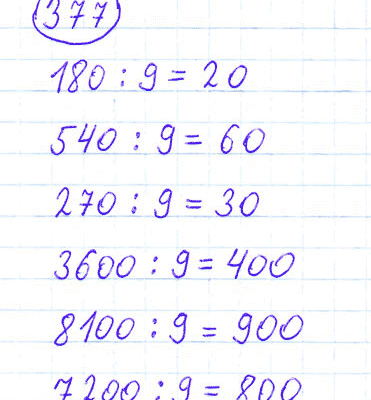 377
180 : 9 = 20
540 : 9 = 60
270 : 9 = 30
3600 : 9 = 400
8100 : 9 = 900
7200 : 9 = 800